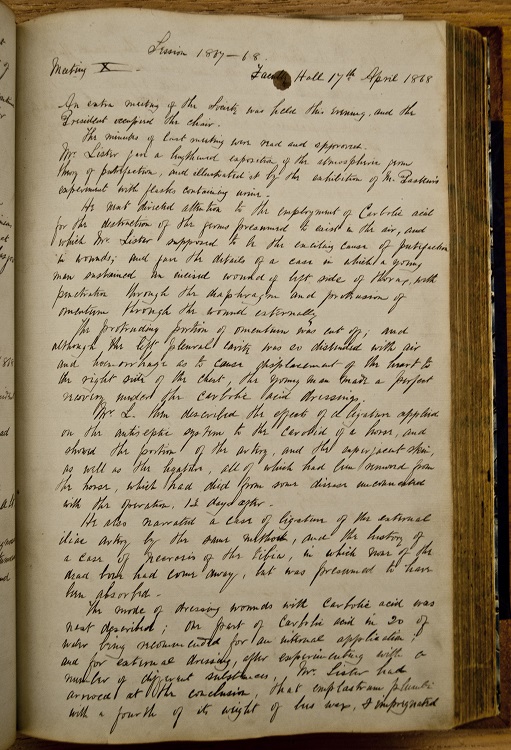 Session 1867–68.
Meeting X
Faculty Hall 17th April 1868
An extra meeting of the Society was held this evening, and the
President occupied the chair.
The minutes of last meeting were read and approved.
Mr. Lister gave a lengthened exposition of the atmospheric germ
theory of putrefaction, and illustrated it by the exhibition of M. Pasteur's
experiment with flasks containing urine.
He next directed attention to the employment of Carbolic acid
for the destruction of the germs presumed to exist in the air, and
which Mr. Lister supposed to be the exciting cause of putrefaction
in wounds; and gave the details of a case in which a young
man sustained an incised wound of left side of thorax, with
penetration through the diaphragm and protrusion of
omentum through the wound externally.
The protruding portion of omentum was cut off; and
although the left pleural cavity was so distended with air
and hoemorrhage as to cause displacement of the heart to
the right side of the chest, the young man made a perfect
recovery under the carbolic acid dressings.
Mr L. then described the effects of a ligature applied
on the antiseptic system to the carotid of a horse, and
showed the portion of the artery, and the superjacent skin,
as well as the ligature, all of which had been removed from
the horse, which had died from some disease unconnected
with the operation, 12 days after.
He also narrated a case of ligature of the external
iliac artery by the same method, and the history of
a case of necrosis of the tibia, in which none of the
dead bone had come away, but was presumed to have
been absorbed.
The mode of dressing wounds with Carbolic acid was
next described; one part of carbolic acid in 20 of
water being recommended for an internal application;
and for external dressing, after experimenting with a
number of different substances, Mr. Lister had
arrived at the conclusion, that emplastrum plumbi
with a fourth of its weight of bees wax, & impregnated